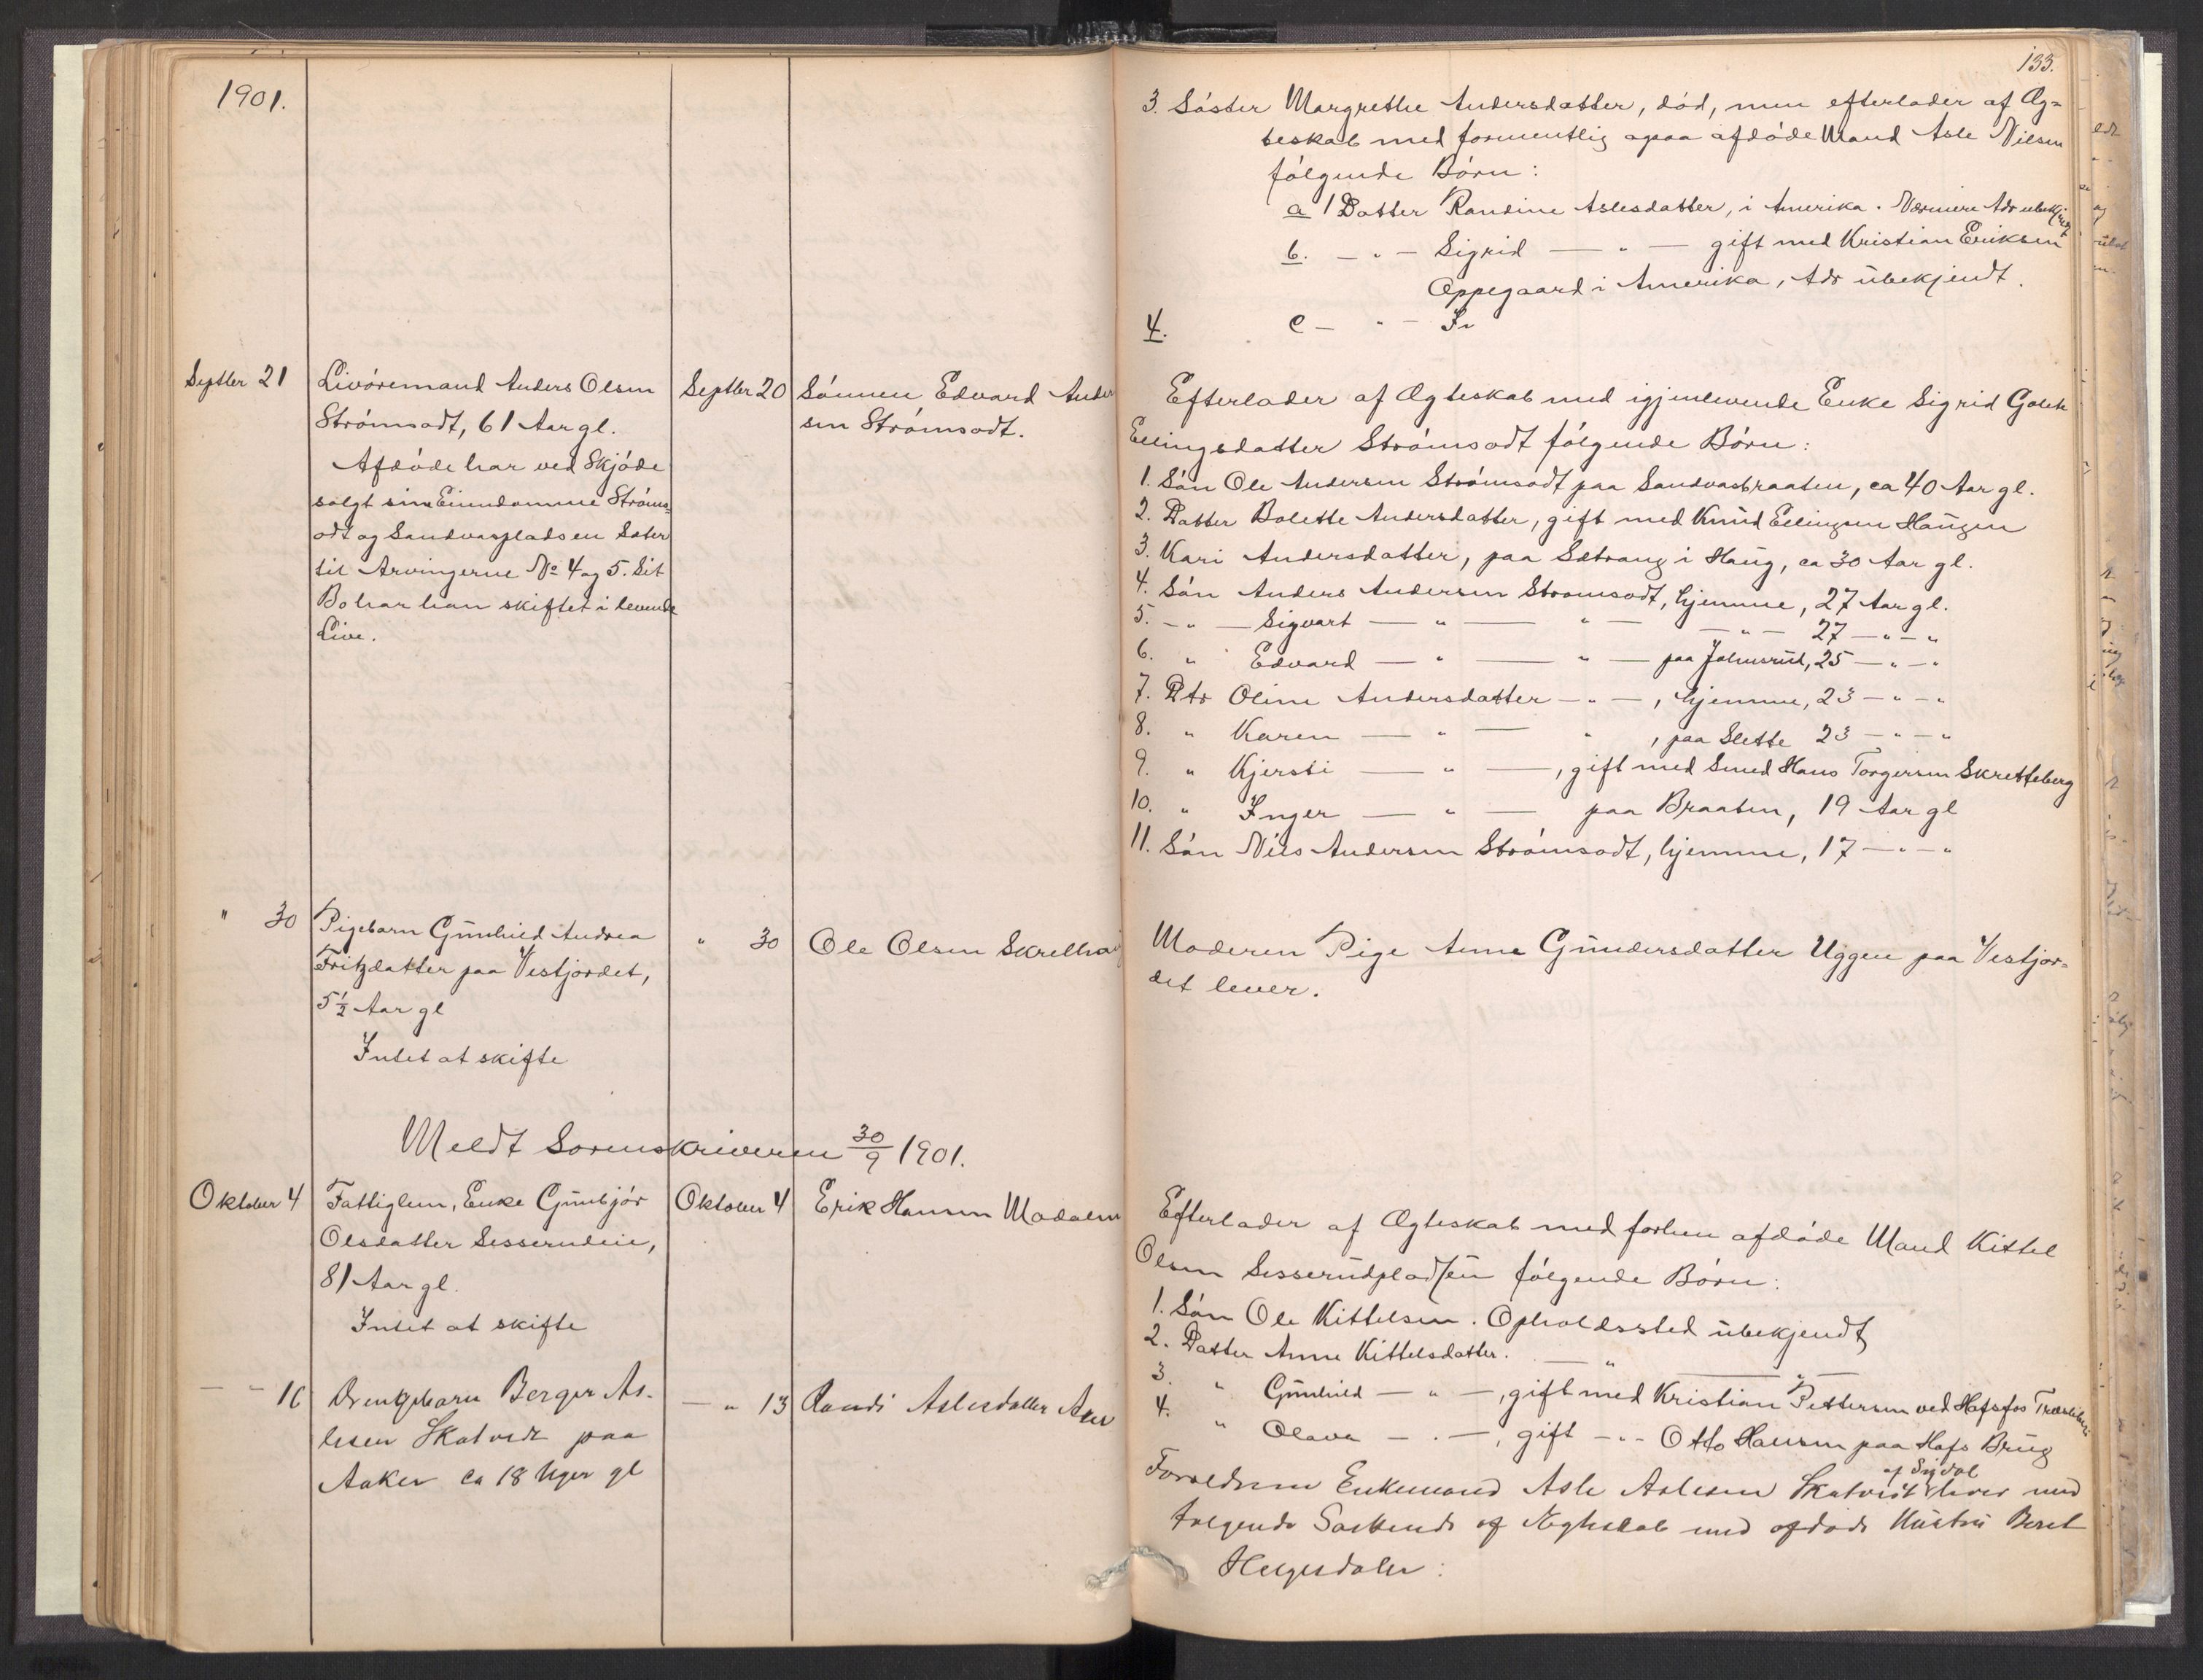 1901.
Septbr 21
Livóremand Anders Olsen
Strömsodt, 61 Aar gl.
Afdöde har ved Skjöde
solgt sine Eiendomme Ströms=
odt og Sandvaspladsen Sæter
til Arvingerne No 4 og 5. Sit
Bo har han skiftet i levende
Live.
Septbr 20
Sönnen Edvard Ander
sen Strömsodt.
" 30
Pigebarn Gunhild Andrea
Fritzdatter paa Vestjordet,
5½ Aar gl
Intet at skifte
" 30
Ole Olsen Skrelhaug
Meldt Sorenskriveren 30/9 1901.
Oktober 4
Fattiglem, Enke Gunbjör
Olsdatter Sesserudeie,
81 Aar gl.
Intet at skifte
Oktober 4
Erik Hansen Modalen
— " 16
Drengebarn Berger As-
lesen Skatvedt paa
Aaker ca 18 Uger gl
— " 13
Randi Aslesdatter Aker
133.
3. Söster Margrethe Andersdatter, död, men efterlader af Æg=
teskab med formentlig ogsaa afdöde Mand Asle Nilsen
fölgende Börn:
a 1 Datter Randine Aslesdatter, i Amerika. Nærmere Adr ubekjendt
b. — " — Sigrid — " — gift med Kristian Eriksen
Oppegaard i Amerika, Adr ubekjendt.
4. c — " — In
Efterlader af Ægteskab med igjenlevende Enke Sigrid Golek
Ellingsdatter Strömsodt fölgende Börn:
1. Sön Ole Andersen Strömsodt paa Sandvasbraaten, ca 40 Aar gl.
2. Datter Bolette Andersdatter, gift med Knud Ellingsen Haugen
3. Kari Andersdatter, paa Sætrang i Haug, ca 30 Aar gl.
4. Sön Anders Andersen Stromsodt, hjemme, 27 Aar gl.
5. — " — Sigvart — " — " — — " — 27 — " — "
6. " Edvard — " — " — paa Johnsrud, 25 — " — "
7. Dtr Oline Andersdatter — " —, hjemme, 23 — " — "
8. " Karen — " — " , paa Slette 23 — " — "
9. " Kjersti — " —, gift med Smed Hans Torgersen Skretteberg
10. " Inger — " — paa Braaten, 19 Aar gl
11. Sön Nils Andersen Strömsodt, hjemme, 17 — " — "
Moderen Pige Anne Gundersdatter Uggen paa Vestjor=
det lever.
Efterlader af Ægteskab med forhen afdöde Mand Kittel
Olsen Sesserudpladsen fölgende Börn:
1. Sön Ole Kittelsen. Opholdssted ubekjendt
2. Datter Anne Kittelsdatter. — " — " —
3. " Gunhild — " —, gift med Kristian Pettersen ved Hofsfos Træsliberi
4. " Olava — " —, gift — " — Otto Hansen paa Hofs Brug
Forældrene Enkemand Asle Aslesen Skatvedt af Sigdal lever med
følgende Søskende af Ægteskab med afdøde Hustru Beret
Helgesdatter: